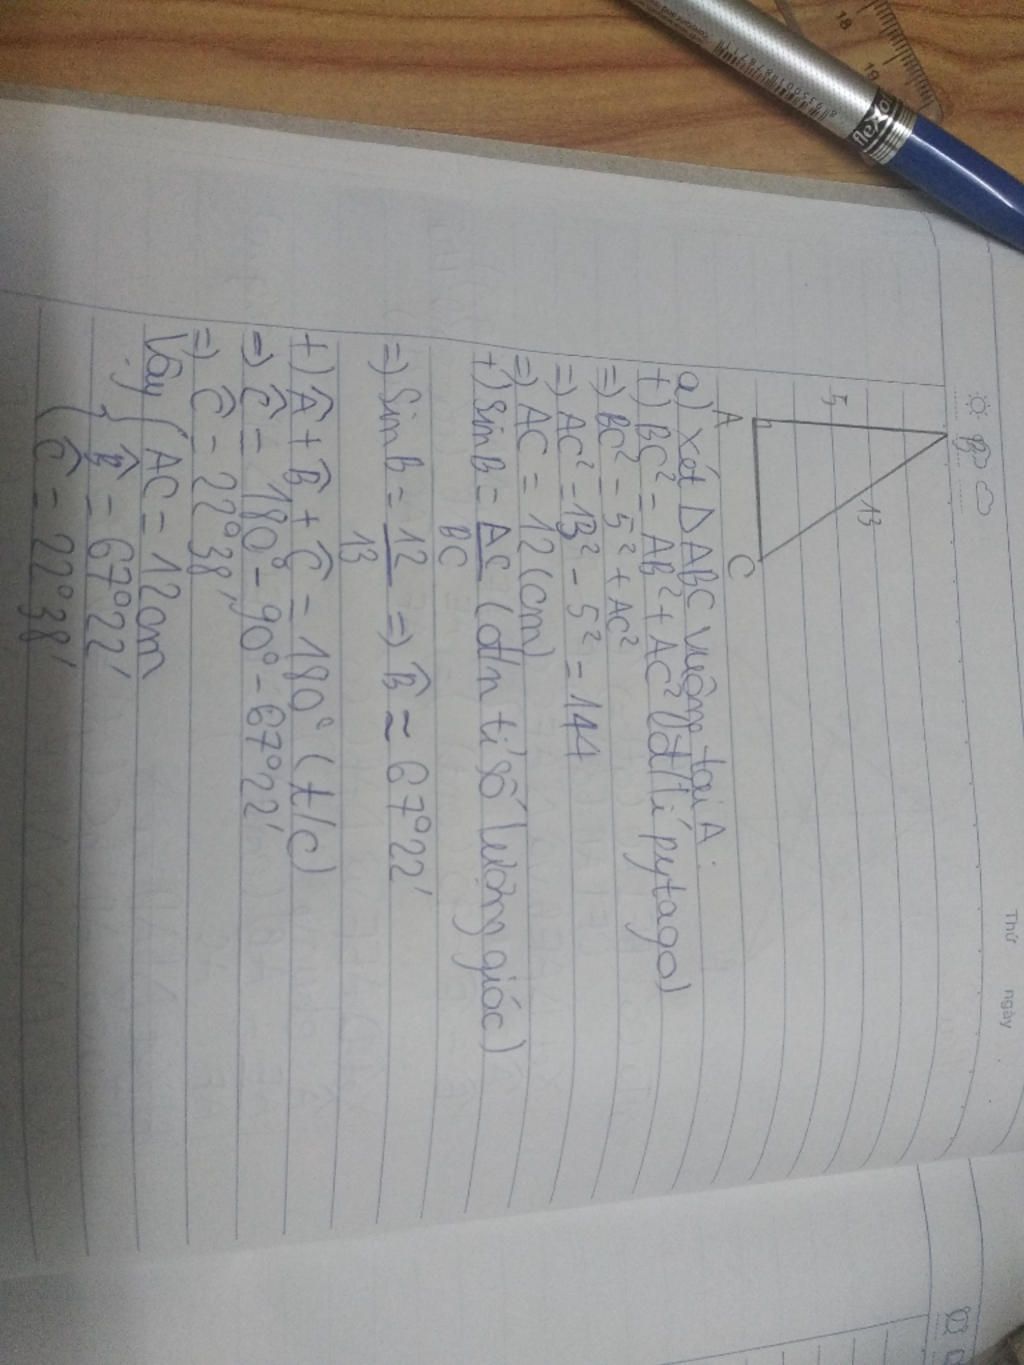 Thứ
ngày
B
5
13
A
C
a) Xét Δ ABC vuông tại A.
+) BC² = AB² + AC² (đ/lí pytago)
=> BC² = 5² + AC²
=> AC² = 13² - 5² = 144
=> AC = 12 (cm)
+) Sin B = AC/BC (đ/n tỉ số lượng giác)
=> Sin B = 12/13 => B̂ ≈ 67°22'
+) Â + B̂ + Ĉ = 180° (t/c)
=> Ĉ = 180° - 90° - 67°22'
=> Ĉ = 22°38'
Vậy { AC = 12cm
B̂ = 67°22'
Ĉ = 22°38'
flexo
18
19